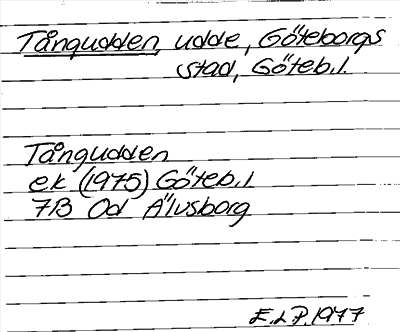 Tångudden, udde, Göteborgs
stad, Göteb.l.
Tångudden
ek (1975) Göteb.l
7B Od Älvsborg
E.L.P. 1977